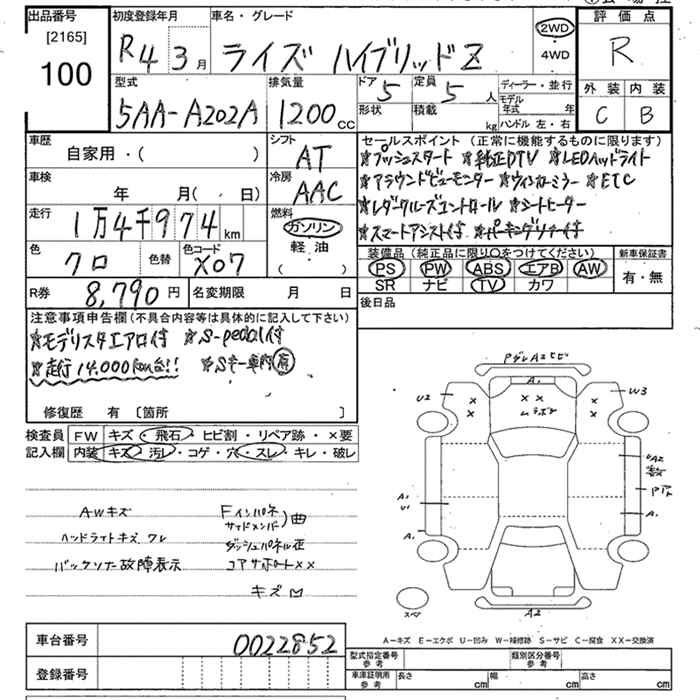 出品番号
[2165]
100
初度登録年月
R4 3月
車名・グレード
ライズ ハイブリッドZ
2WD
・
4WD
評価点
R
外装 内装
C B
型式
5AA-A202A
排気量
1200cc
ドア 5
定員 5人
形状
積載 kg
ディーラー・並行
モデル年式 年
ハンドル 左・右
車歴
自家用・( )
車検
年 月( 日)
走行
1万4千974km
色
クロ
色替
色コード
X07
シフト
AT
冷房
AAC
燃料
ガソリン
軽油
( )
セールスポイント (正常に機能するものに限ります)
★プッシュスタート ★純正DTV ★LEDヘッドライト
★アラウンドビューモニター ★ウィンカーミラー ★ETC
★レダクルーズコントロール ★シートヒーター
★スマートアシスト付
装備品 (純正品に限り○をつけてください)
PS PW ABS エアB AW
SR ナビ TV カワ
新車保証書
有・無
後日品
R券
8,790円
名変期限 月 日
注意事項申告欄 (不具合内容等は具体的に記入して下さい)
★モデリスタエアロ付 ★S-pedal付
★走行14,000km台!! ★Sキー車内有
修復歴 有 〔箇所 〕
検査員 FW キズ・飛石・ヒビ割・リペア跡・×要
記入欄 内装 キズ・汚レ・コゲ・穴・スレ・キレ・破レ
AWキズ
ヘッドライトキズ ワレ
バックソナ故障表示
Fインパネ
サイドメンバー)曲
ダッシュパネル歪
コアサポートXX
キズ凹
PグレA2ヒビ
A.
U2
W3
A.
U1
A.
UA2
A.
A2
スペア
A-キズ E-エクボ U-凹み W-補修跡 S-サビ C-腐食 XX-交換済
車台番号
0022852
登録番号
型式指定番号
参考
類別区分番号
参考
車庫証明用
参考
長さ cm
幅 cm
高さ cm